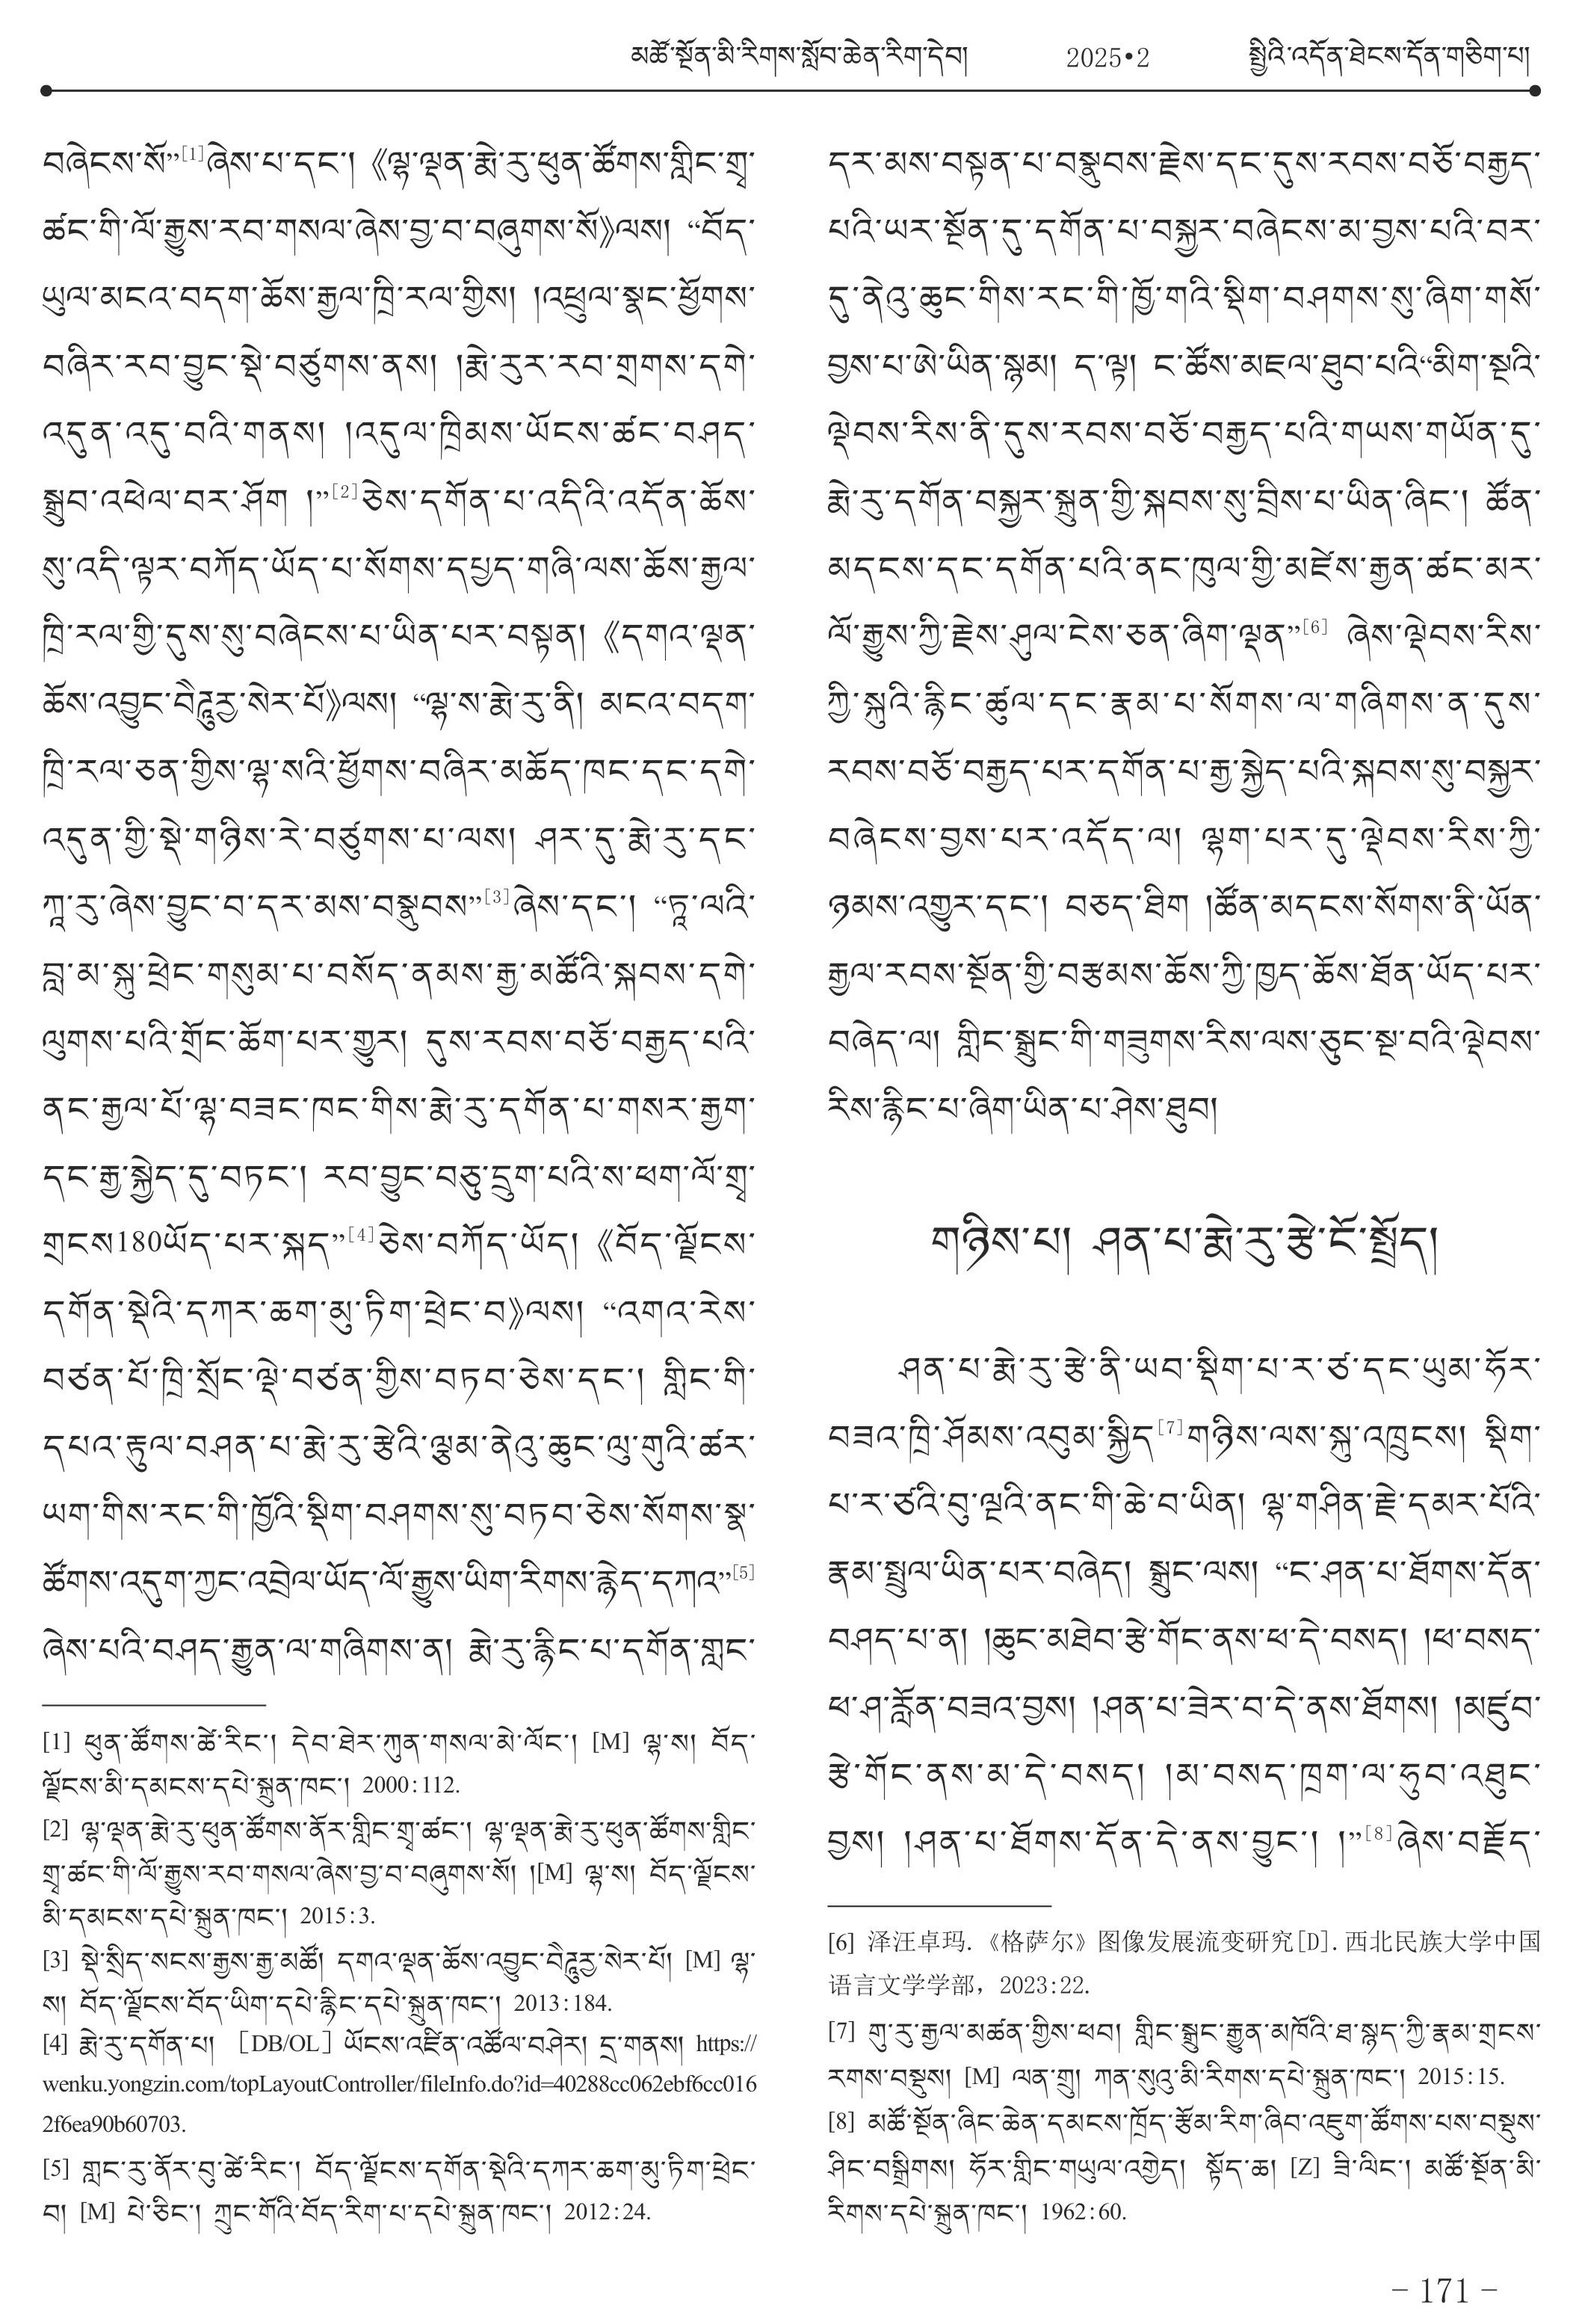 མཚོ་སྔོན་མི་རིགས་སློབ་ཆེན་རིག་དེབ། 2025•2 སྤྱིའི་འདོན་ཐེངས་དོན་གཅིག་པ།
བཞེངས་སོ”[1]ཞེས་པ་དང་། 《ལྷ་ལྡན་རྨེ་རུ་ཕུན་ཚོགས་གླིང་གྲྭ་
ཚང་གི་ལོ་རྒྱུས་རབ་གསལ་ཞེས་བྱ་བ་བཞུགས་སོ》ལས། “བོད་
ཡུལ་མངའ་བདག་ཆོས་རྒྱལ་ཁྲི་རལ་གྱིས། །འཕྲུལ་སྣང་ཕྱོགས་
བཞིར་རབ་བྱུང་སྡེ་བཙུགས་ནས། །རྨེ་རུར་རབ་གྲགས་དགེ་
འདུན་འདུ་བའི་གནས། །འདུལ་ཁྲིམས་ཡོངས་ཚང་བཤད་
སྒྲུབ་འཕེལ་བར་ཤོག །”[2]ཅེས་དགོན་པ་འདིའི་འདོན་ཆོས་
སུ་འདི་ལྟར་བཀོད་ཡོད་པ་སོགས་དཔྱད་གཞི་ལས་ཆོས་རྒྱལ་
ཁྲི་རལ་གྱི་དུས་སུ་བཞེངས་པ་ཡིན་པར་བསྟན། 《དགའ་ལྡན་
ཆོས་འབྱུང་བཻཌཱུརྱ་སེར་པོ》ལས། “ལྷ་ས་རྨེ་རུ་ནི། མངའ་བདག་
ཁྲི་རལ་ཅན་གྱིས་ལྷ་སའི་ཕྱོགས་བཞིར་མཆོད་ཁང་དང་དགེ་
འདུན་གྱི་སྡེ་གཉིས་རེ་བཙུགས་པ་ལས། ཤར་དུ་རྨེ་རུ་དང་
ཀཱ་རུ་ཞེས་བྱུང་བ་དར་མས་བསྣུབས”[3]ཞེས་དང་། “ཏཱ་ལའི་
བླ་མ་སྐུ་ཕྲེང་གསུམ་པ་བསོད་ནམས་རྒྱ་མཚོའི་སྐབས་དགེ་
ལུགས་པའི་གྲོང་ཆོག་པར་གྱུར། དུས་རབས་བཅོ་བརྒྱད་པའི་
ནང་རྒྱལ་པོ་ལྷ་བཟང་ཁང་གིས་རྨེ་རུ་དགོན་པ་གསར་རྒྱག་
དང་རྒྱ་སྐྱེད་དུ་བཏང་། རབ་བྱུང་བཅུ་དྲུག་པའི་ས་ཕག་ལོ་གྲྭ་
གྲངས180ཡོད་པར་སྐད”[4]ཅེས་བཀོད་ཡོད། 《བོད་ལྗོངས་
དགོན་སྡེའི་དཀར་ཆག་མུ་ཏིག་ཕྲེང་བ》ལས། “འགའ་རེས་
བཙན་པོ་ཁྲི་སྲོང་ལྡེ་བཙན་གྱིས་བཏབ་ཅེས་དང་། གླིང་གི་
དཔའ་རྟུལ་བཤན་པ་རྨེ་རུ་རྩེའི་ལྕམ་ནེའུ་ཆུང་ལུ་གུའི་ཚར་
ཡག་གིས་རང་གི་ཁྱོའི་སྡིག་བཤགས་སུ་བཏབ་ཅེས་སོགས་སྣ་
ཚོགས་འདུག་ཀྱང་འབྲེལ་ཡོད་ལོ་རྒྱུས་ཡིག་རིགས་རྙེད་དཀའ”[5]
ཞེས་པའི་བཤད་རྒྱུན་ལ་གཞིགས་ན། རྨེ་རུ་རྙིང་པ་དགོན་གླང་
[1] ཕུན་ཚོགས་ཚེ་རིང་། དེབ་ཐེར་ཀུན་གསལ་མེ་ལོང་། [M] ལྷ་ས། བོད་
ལྗོངས་མི་དམངས་དཔེ་སྐྲུན་ཁང་། 2000:112.
[2] ལྷ་ལྡན་རྨེ་རུ་ཕུན་ཚོགས་ནོར་གླིང་གྲྭ་ཚང་། ལྷ་ལྡན་རྨེ་རུ་ཕུན་ཚོགས་གླིང་
གྲྭ་ཚང་གི་ལོ་རྒྱུས་རབ་གསལ་ཞེས་བྱ་བ་བཞུགས་སོ། །[M] ལྷ་ས། བོད་ལྗོངས་
མི་དམངས་དཔེ་སྐྲུན་ཁང་། 2015:3.
[3] སྡེ་སྲིད་སངས་རྒྱས་རྒྱ་མཚོ། དགའ་ལྡན་ཆོས་འབྱུང་བཻཌཱུརྱ་སེར་པོ། [M] ལྷ་
ས། བོད་ལྗོངས་བོད་ཡིག་དཔེ་རྙིང་དཔེ་སྐྲུན་ཁང་། 2013:184.
[4] རྨེ་རུ་དགོན་པ། ［DB/OL］ཡོངས་འཛིན་འཚོལ་བཤེར། དྲ་གནས། https://
wenku.yongzin.com/topLayoutController/fileInfo.do?id=40288cc062ebf6cc016
2f6ea90b60703.
[5] གླང་རུ་ནོར་བུ་ཚེ་རིང་། བོད་ལྗོངས་དགོན་སྡེའི་དཀར་ཆག་མུ་ཏིག་ཕྲེང་
བ། [M] པེ་ཅིང་། ཀྲུང་གོའི་བོད་རིག་པ་དཔེ་སྐྲུན་ཁང་། 2012:24.
དར་མས་བསྟན་པ་བསྣུབས་རྗེས་དང་དུས་རབས་བཅོ་བརྒྱད་
པའི་ཡར་སྔོན་དུ་དགོན་པ་བསྐྱར་བཞེངས་མ་བྱས་པའི་བར་
དུ་ནེའུ་ཆུང་གིས་རང་གི་ཁྱོ་གའི་སྡིག་བཤགས་སུ་ཞིག་གསོ་
བྱས་པ་ཨེ་ཡིན་སྙམ། ད་ལྟ། ང་ཚོས་མཇལ་ཐུབ་པའི“མིག་སྔའི་
ལྡེབས་རིས་ནི་དུས་རབས་བཅོ་བརྒྱད་པའི་གཡས་གཡོན་དུ་
རྨེ་རུ་དགོན་བསྐྱར་སྐྲུན་གྱི་སྐབས་སུ་བྲིས་པ་ཡིན་ཞིང་། ཚོན་
མདངས་དང་དགོན་པའི་ནང་ཁུལ་གྱི་མཛེས་རྒྱན་ཚང་མར་
ལོ་རྒྱུས་ཀྱི་རྗེས་ཤུལ་ངེས་ཅན་ཞིག་ལྡན”[6] ཞེས་ལྡེབས་རིས་
ཀྱི་སྐུའི་རྙིང་ཚུལ་དང་རྣམ་པ་སོགས་ལ་གཞིགས་ན་དུས་
རབས་བཅོ་བརྒྱད་པར་དགོན་པ་རྒྱ་སྐྱེད་པའི་སྐབས་སུ་བསྐྱར་
བཞེངས་བྱས་པར་འདོད་ལ། ལྷག་པར་དུ་ལྡེབས་རིས་ཀྱི་
ཉམས་འགྱུར་དང་། བཅད་ཐིག །ཚོན་མདངས་སོགས་ནི་ཡོན་
རྒྱལ་རབས་སྔོན་གྱི་བརྩམས་ཆོས་ཀྱི་ཁྱད་ཆོས་ཐོན་ཡོད་པར་
བཞེད་ལ། གླིང་སྒྲུང་གི་གཟུགས་རིས་ལས་ཅུང་སྔ་བའི་ལྡེབས་
རིས་རྙིང་པ་ཞིག་ཡིན་པ་ཤེས་ཐུབ།
གཉིས་པ། ཤན་པ་རྨེ་རུ་རྩེ་ངོ་སྤྲོད།
ཤན་པ་རྨེ་རུ་རྩེ་ནི་ཡབ་སྡིག་པ་ར་ཙ་དང་ཡུམ་ཧོར་
བཟའ་ཁྲི་ཤོམས་འབུམ་སྐྱིད[7]གཉིས་ལས་སྐུ་འཁྲུངས། སྡིག་
པ་ར་ཙའི་བུ་ལྔའི་ནང་གི་ཆེ་བ་ཡིན། ལྷ་གཤིན་རྗེ་དམར་པོའི་
རྣམ་སྤྲུལ་ཡིན་པར་བཞེད། སྒྲུང་ལས། “ང་ཤན་པ་ཐོགས་དོན་
བཤད་པ་ན། །ཆུང་མཐེབ་རྩེ་གོང་ནས་ཕ་དེ་བསད། །ཕ་བསད་
ཕ་ཤ་རློན་བཟའ་བྱས། །ཤན་པ་ཟེར་བ་དེ་ནས་ཐོགས། །མཛུབ་
རྩེ་གོང་ནས་མ་དེ་བསད། །མ་བསད་ཁྲག་ལ་ཧུབ་འཐུང་
བྱས། །ཤན་པ་ཐོགས་དོན་དེ་ནས་བྱུང་། །”[8]ཞེས་བརྗོད་
[6] 泽汪卓玛.《格萨尔》图像发展流变研究[D].西北民族大学中国
语言文学学部，2023:22.
[7] གུ་རུ་རྒྱལ་མཚན་གྱིས་ཕབ། གླིང་སྒྲུང་རྒྱུན་མཁོའི་ཐ་སྙད་ཀྱི་རྣམ་གྲངས་
རགས་བསྡུས། [M] ལན་གྲུ། ཀན་སུའུ་མི་རིགས་དཔེ་སྐྲུན་ཁང་། 2015:15.
[8] མཚོ་སྔོན་ཞིང་ཆེན་དམངས་ཁྲོད་རྩོམ་རིག་ཞིབ་འཇུག་ཚོགས་པས་བསྡུས་
ཤིང་བསྒྲིགས། ཧོར་གླིང་གཡུལ་འགྱེད། སྟོད་ཆ། [Z] ཟི་ལིང་། མཚོ་སྔོན་མི་
རིགས་དཔེ་སྐྲུན་ཁང་། 1962:60.
– 171 –